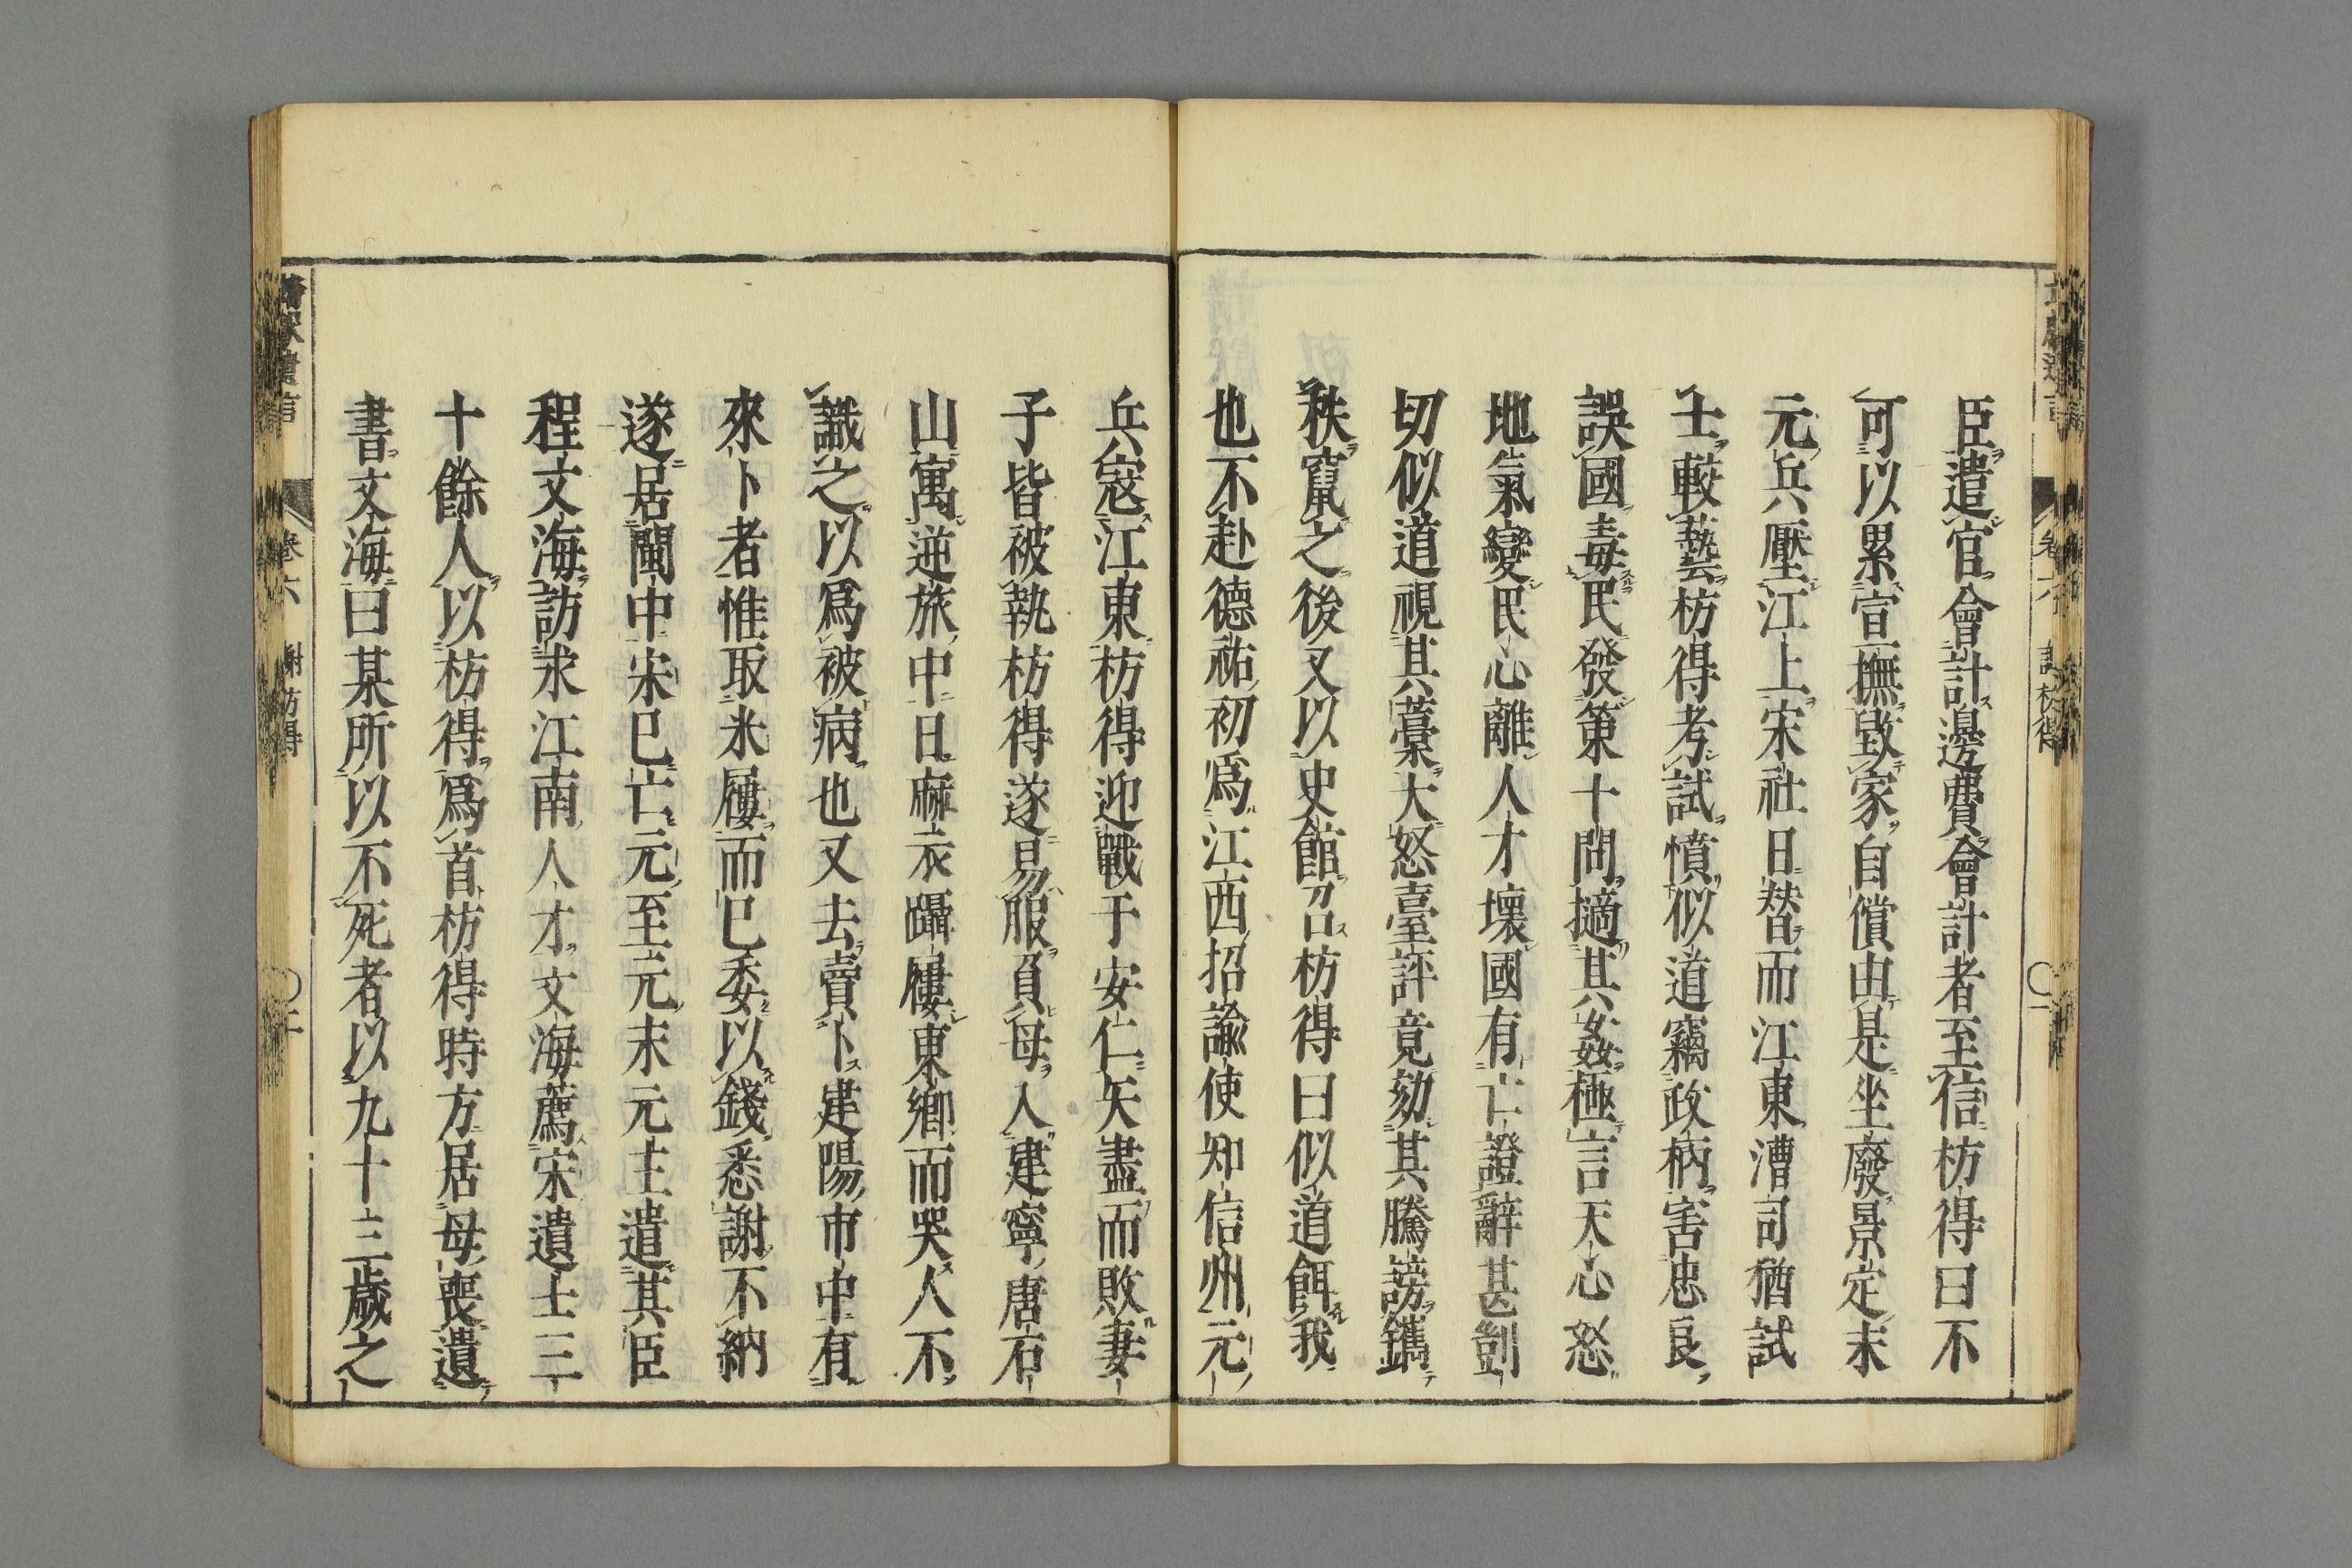 臣遣官會計邊費會計者至信枋得曰不
可以累宣撫毀家自償由是坐廢景定末
元兵壓江上宋社日朁而江東漕司猶試
士較藝枋得考試憤似道竊政柄害忠良
誤國毒民發策十問擿其姦極言天心怒
地氣變民心離人才壞國有亡證辭甚剴
切似道視其藳大怒臺評竟劾其騰謗鐫
秩竄之後又以史館召枋得曰似道餌我
也不赴德祐初爲江西招諭使知信州元
兵寇江東枋得迎戰于安仁矢盡而敗妻
子皆被執枋得遂易服負母入建寧唐石
山寓逆旅中日麻衣躡屨東鄉而哭人不
識之以爲被病也又去賣卜建陽市中有
來卜者惟取米屨而已委以錢悉謝不納
遂居閩中宋已亡元至元末元主遣其臣
程文海訪求江南人才文海薦宋遺士三
十餘人以枋得爲首枋得時方居母喪遺
書文海曰某所以不死者以九十三歲之
卷六 謝枋得 二